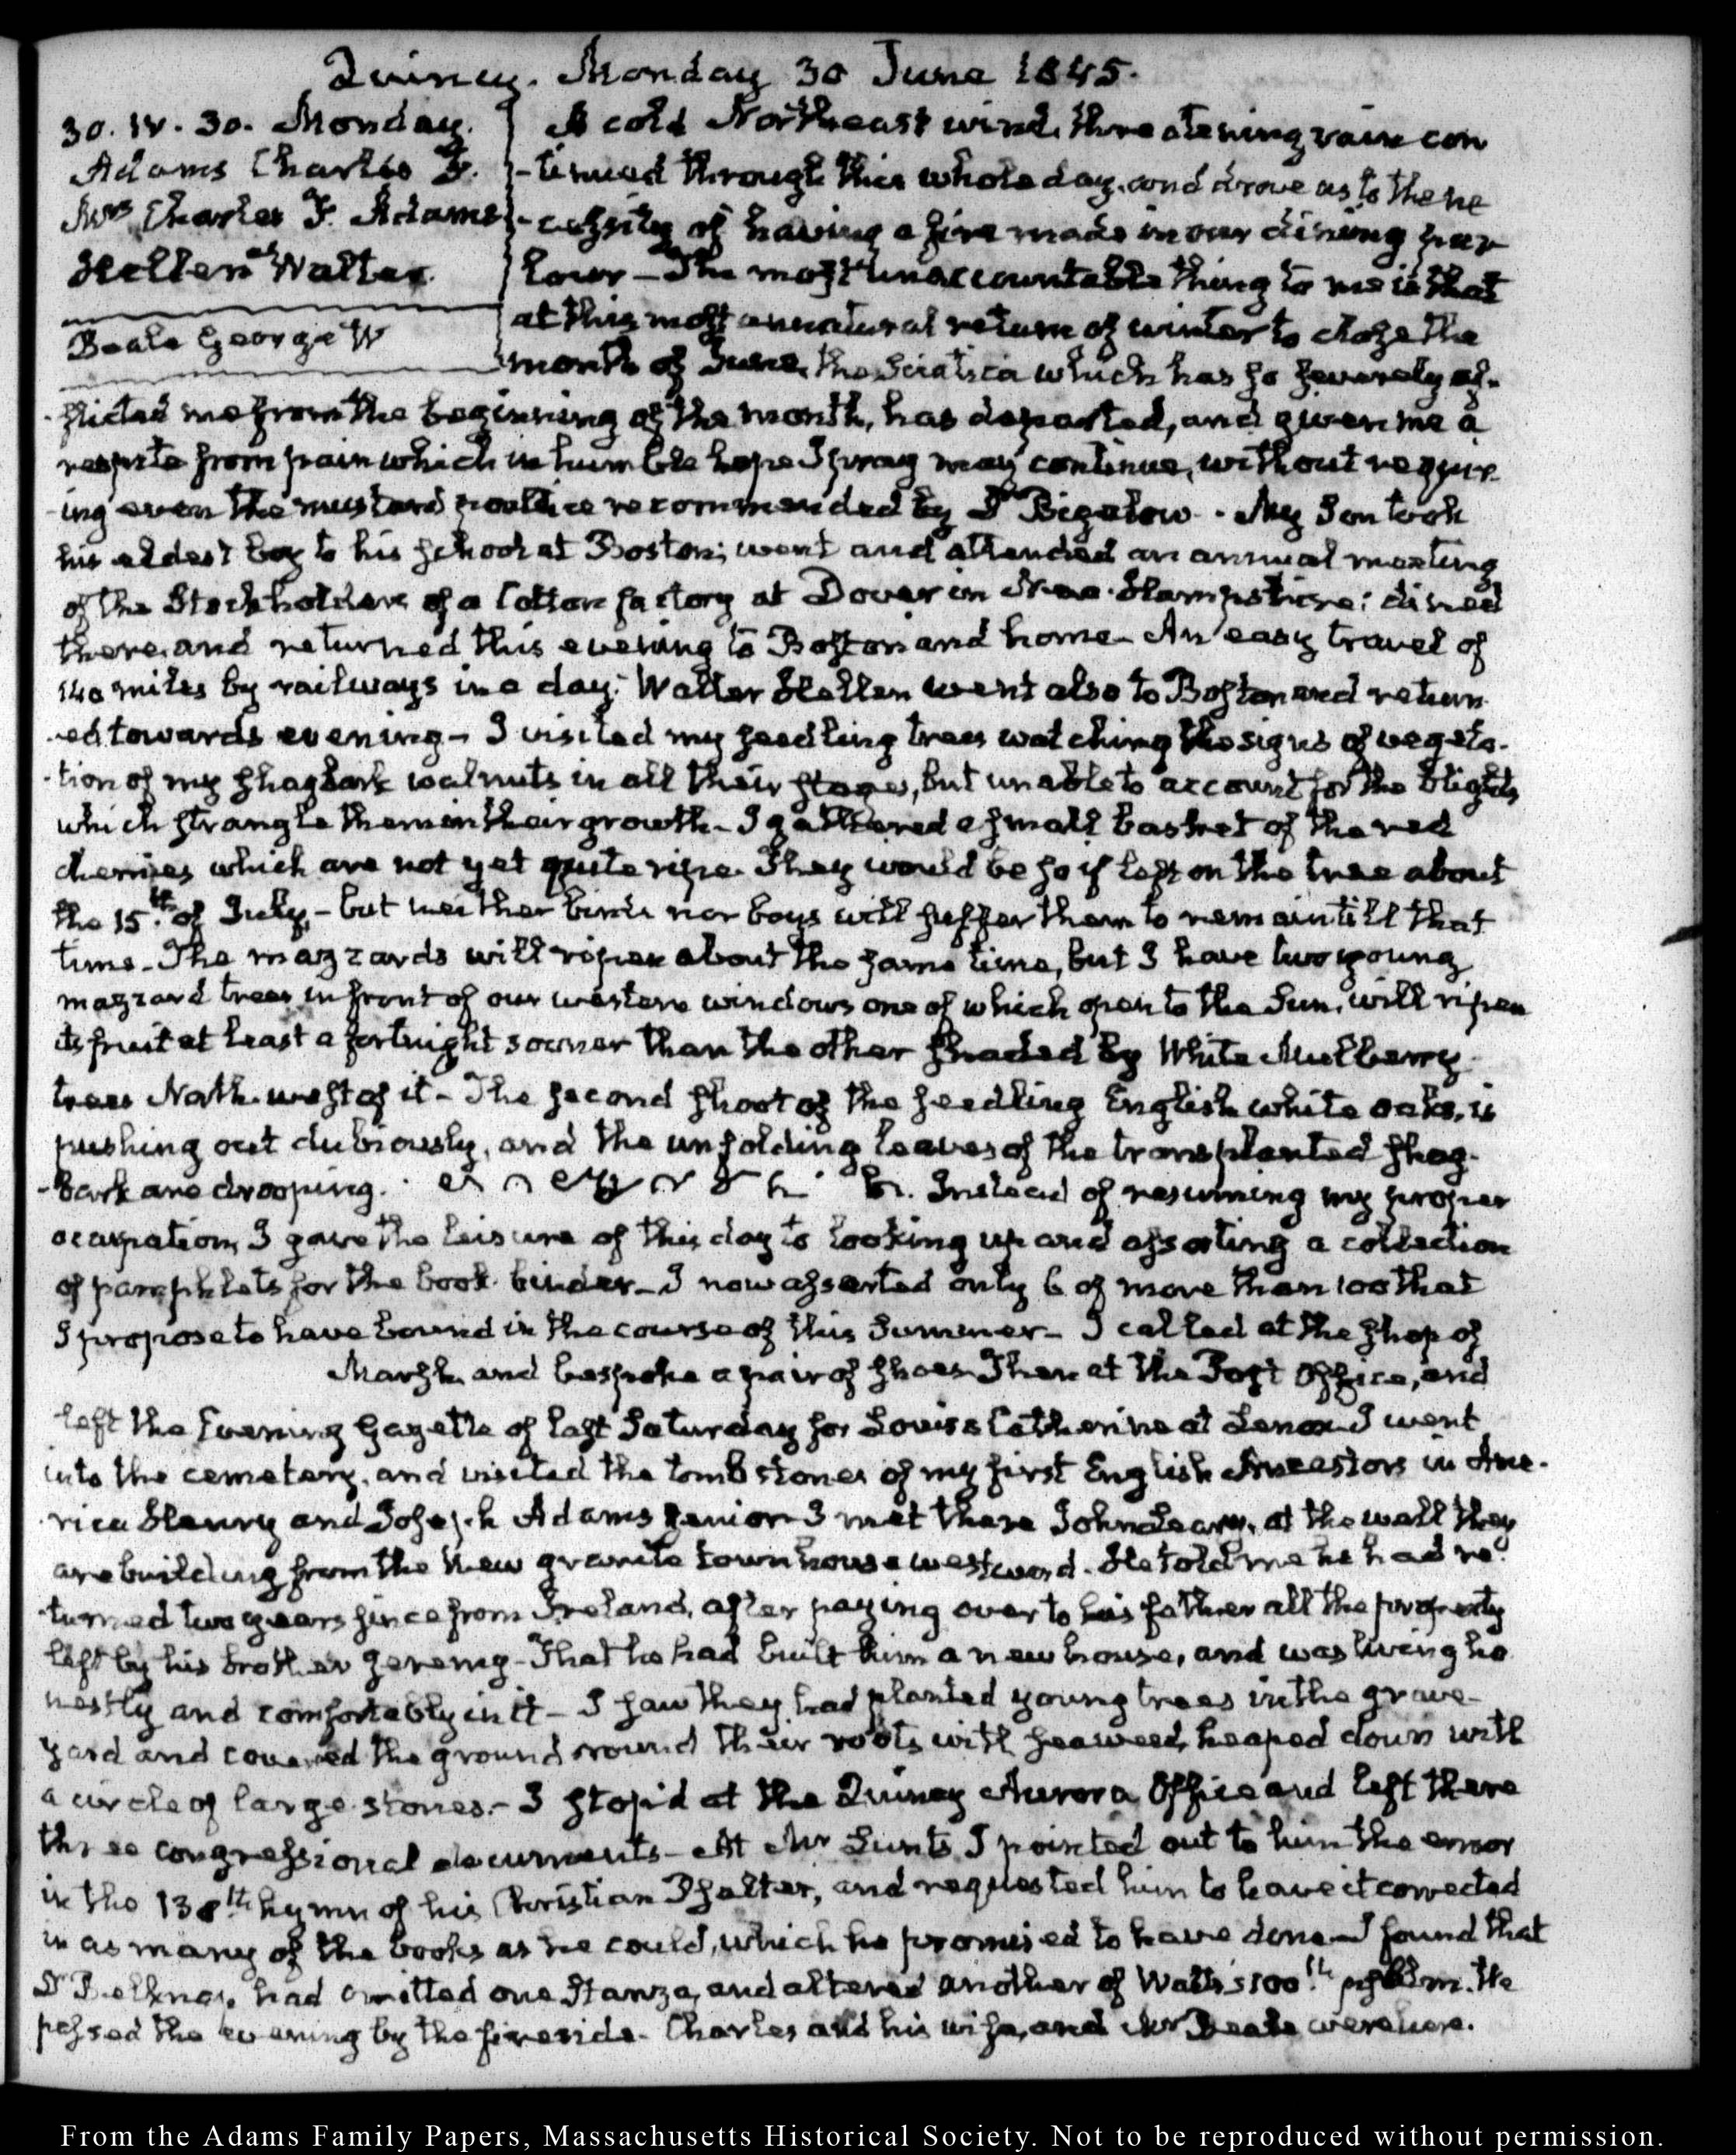 Quincy. Monday 30 June 1845.
30. IV. 30. Monday.
Adams Charles F.
Mrs Charles F. Adams
Hellen Walter
Beale George W
A cold Northeast wind, threatening rain con
-tinued through this whole day, and drove us to the ne
-cessity of having a fire made in our dining par
lour — The most unaccountable thing to me is that
at this most unnatural return of winter to close the
month of June, the Sciatica which has so severely af-
-flicted me from the beginning of the month, has departed, and given me a
respite from pain which in humble hope I pray may continue, without requir
-ing even the mustard poultice recommended by Dr Bigelow. - My Son took
his eldest boy to his school at Boston; went and attended an annual meeting
of the Stockholders of a Cotton factory at Dover in New-Hampshire: dined
there, and returned this evening to Boston and home - An easy travel of
140 miles by railways in a day. Walter Hellen went also to Boston and return
-ed towards evening - I visited my seedling trees watching the signs of vegeta-
-tion of my shagbark walnuts in all their stages, but unable to account for the blights
which strangle them in their growth - I gathered a small basket of the red
cherries which are not yet quite ripe. They would be so if left on the tree about
the 15th. of July, - but neither birds nor boys will suffer them to remain till that
time - The mazzards will ripen about the same time, but I have two young
mazzard trees in front of our western windows one of which open to the Sun, will ripen
its fruit at least a fortnight sooner than the other shaded by White Mulberry
trees North-west of it - The second shoot of the seedling English white oaks, is
pushing out dubiously, and the unfolding leaves of the transplanted shag-
-bark are drooping. Instead of resuming my proper
occupation, I gave the leisure of this day to looking up and assorting a collection
of pamphlets for the book-binder - I now assorted only 6 of more than 100 that
I propose to have bound in the course of this Summer - I called at the shop of
Marsh, and bespoke a pair of shoes. Then at the Post Office, and
left the Evening Gazette of last Saturday for Louisa Catherine at Lenox. I went
into the cemetery, and visited the tomb stones of my first English Ancestors in Ame-
-rica Henry and Joseph Adams senior - I met there John at the wall they
are building from the new granite town house westward. He told me he had re-
-turned two years since from Ireland, after paying over to his father all the property
left by his brother Jeremy - That he had built him a new house, and was living ho
nestly and comfortably in it - I saw they had planted young trees in the grave-
yard and covered the ground round their roots with seaweed, heaped down with
a circle of large stones - I stop'd at the Quincy Aurora Office and left there
three congressional documents - At Mr Lunt's I pointed out to him the error
in the 138th hymn of his Christian Psalter, and requested him to have it corrected
in as many of the books as he could, which he promised to have done - I found that
Dr Belknap, had omitted one Stanza, and altered another of Watts's 100th. psalm. We
passed the evening by the fireside. Charles and his wife, and Mr Beale were here.